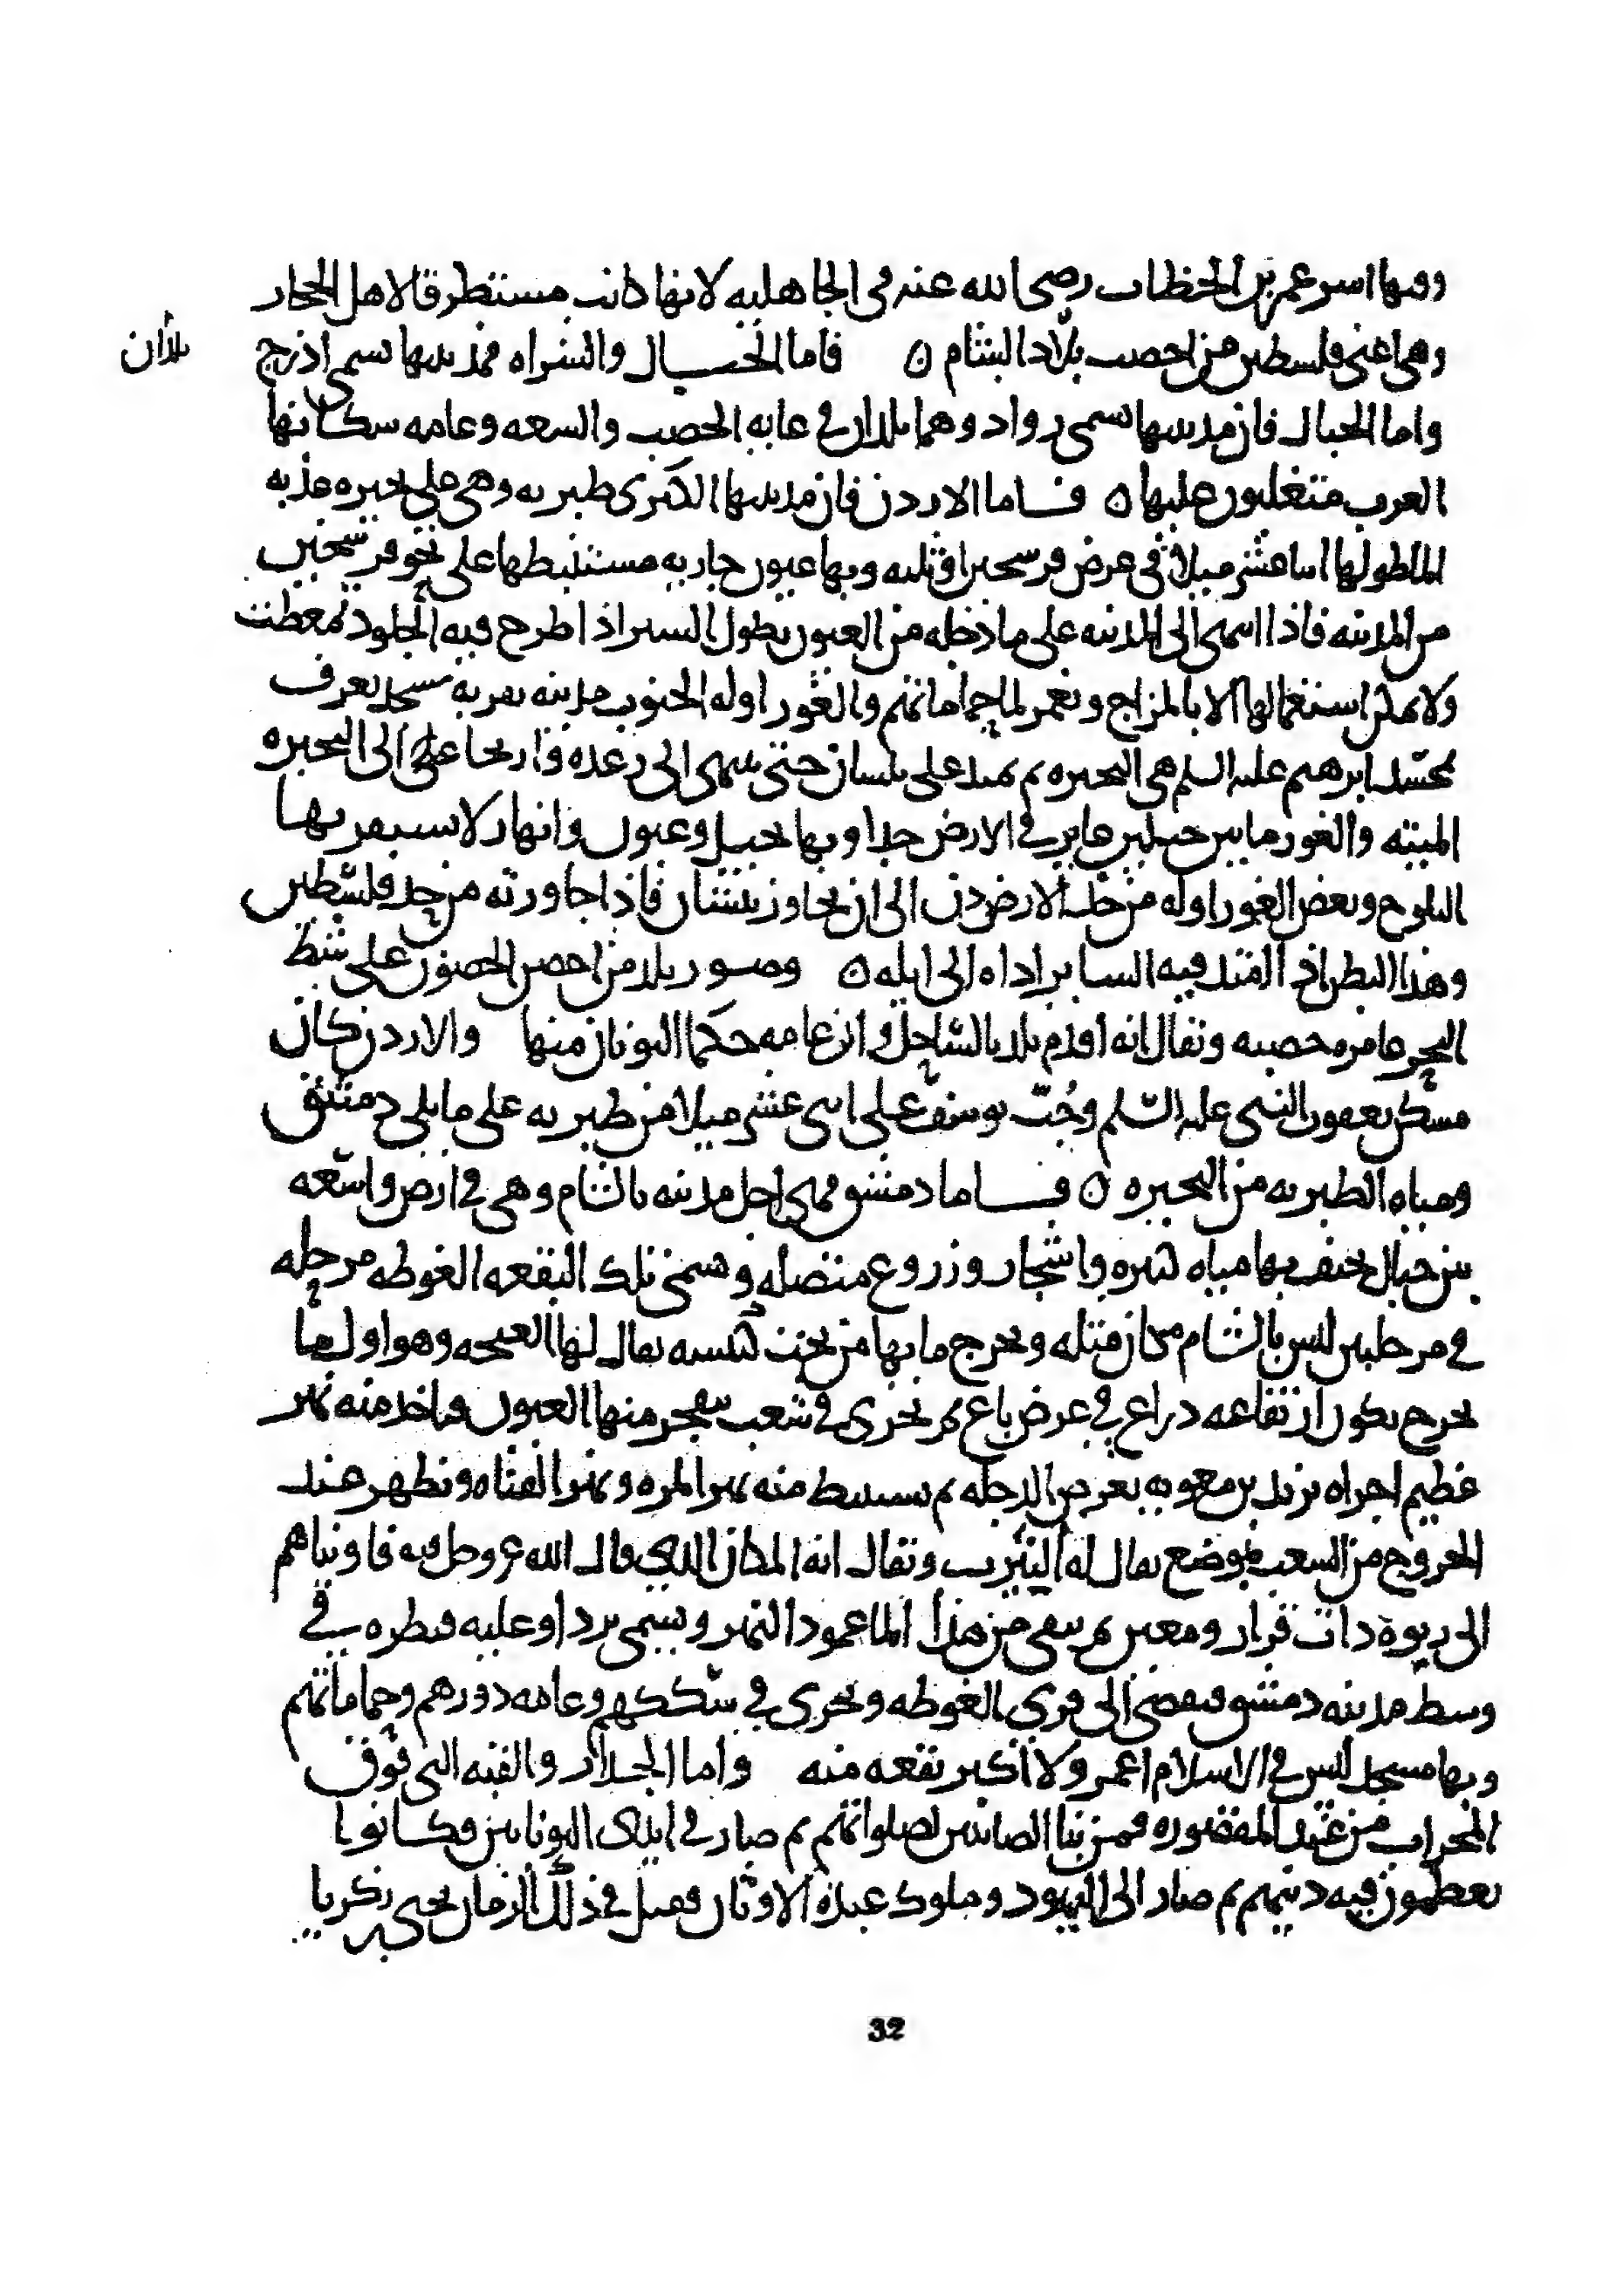 وفيها ايسر عمر بن الخطاب رضى الله عنه فى الجاهليه لانها كانت مستطرقا لاهل الحجاز
وهى اعنى فلسطين من اخصب بلاد الشام ن فاما الجبال والشراه فمدينتها تسمى اذرح
بلدان
واما الجبال فان مدينتها تسمى رواد وهما بلدان فى غايه الخصب والسعه وعامه سكانها
العرب متغلبون عليها ن فاما الاردن فان مدينتها الكبرى طبريه وهى على بحيره عذبه
الما طولها اثنا عشر ميلا فى عرض فرسخين او ثلثه وبها عيون جاريه مستنبطها على نحو فرسخين
من المدينه فاذا انتهى الى المدينه على ما دخله من العيون بطول السير اذا طرح فيه الجلود تمعطت
ولا يمكن استعمالها الا بالمزاج ونعم الما حماماتهم والغور اوله الجنوب مدينه بقربه مسجد يعرف
بمسجد ابرهيم عليه السلم هى البحيره ثم يمتد على بيسان حتى ينتهى الى زغره واريحا على الى البحيره
الميته والغور ما بين جبلين غاير فى الارض جدا وبها نخيل وعيون وانهار لا تستقر بها
الثلوج وبعض الغور اوله من حد الاردن الى ان يجاوز بيسان فاذا جاوزته من حد فلسطين
وهذا البطن اذا امتد فيه الساير اداه الى ايله ن وصور بلد من احصن الحصون على شط
البحر عامره خصبه ويقال انه اقدم بلد بالساحل وان عامه حكما اليونان منها والاردن كان
مسكن يعقوب النبى عليه السلم وجب يوسف على اثنى عشر ميلا من طبريه على ما يلى دمشق
ومياه الطبريه من البحيره ن فاما دمشق فهى اجل مدينه بالشام وهى فى ارض واسعه
بين جبال تحتف بها مياه كثيره واشجار وزروع متصله وتسمى تلك البقعه الغوطه مرحله
فى مرحلتين ليس بالشام مكان مثله ومخرج مائها من تحت كنيسه يقال لها الفيجه وهو اول ما
يخرج يكون ارتفاعه ذراع فى عرض باع ثم يجرى فى شعب تنفجر منها العيون فياخذ منه نهر
عظيم اجراه يزيد بن معويه يعرض الدجله ثم يستنبط منه نهر المزه ونهر القناه ويظهر عند
الخروج من الشعب بموضع يقال له النيرب ويقال انه المكان الذى قال الله عز وجل فيه فاويناهم
الى ربوة ذات قرار ومعين ثم يبقى من هذا الما عمود النهر ويسمى بردا وعليه قنطره فى
وسط مدينه دمشق فيفضى الى قرى الغوطه ويجرى فى سككهم وعامه دورهم وحماماتهم
وبها مسجد ليس فى الاسلام اعمر ولا اكبر بقعه منه واما الجدار والقبه التى فوق
المحراب من عند المقصوره فمن بنا الصابئين لصلواتهم ثم صار فى ايدى اليونانين فكانوا
يعظمون فيه دينهم ثم صار الى اليهود وملوك عبدة الاوثان فقتل فى ذلك الزمان يحيى بن زكريا
32